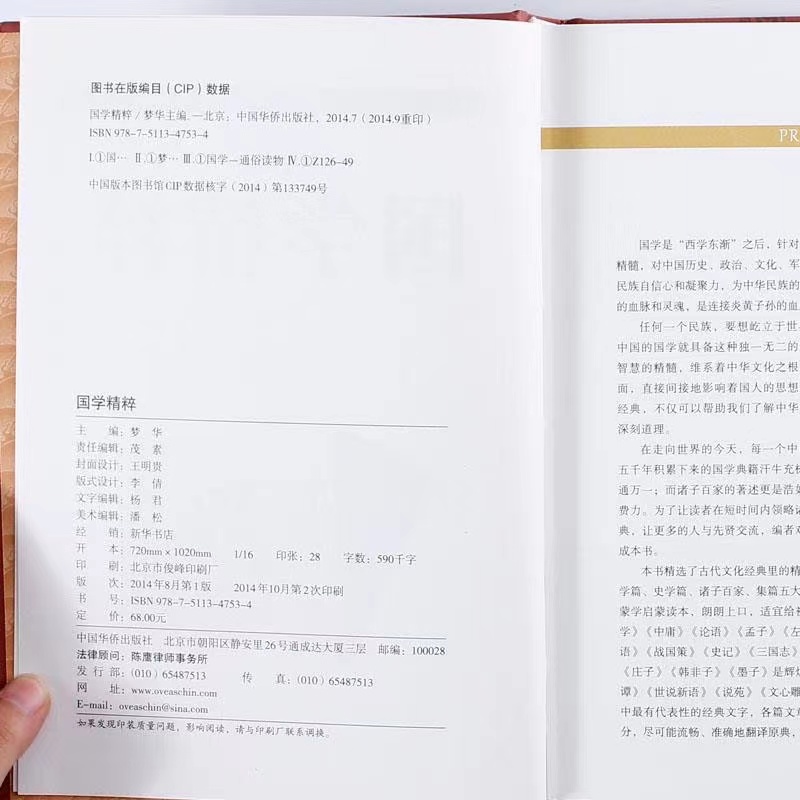 图书在版编目（CIP）数据
国学精粹 / 梦华主编. —北京：中国华侨出版社，2014.7（2014.9重印）
ISBN 978-7-5113-4753-4
Ⅰ.①国… Ⅱ.①梦… Ⅲ.①国学—通俗读物 Ⅳ.①Z126-49
中国版本图书馆CIP数据核字（2014）第133749号
国学精粹
主　　编：梦　华
责任编辑：茂　素
封面设计：王明贵
版式设计：李　倩
文字编辑：杨　君
美术编辑：潘　松
经　　销：新华书店
开　　本：720mm×1020mm　1/16　印张：28　字数：590千字
印　　刷：北京市俊峰印刷厂
版　　次：2014年8月第1版　2014年10月第2次印刷
书　　号：ISBN 978-7-5113-4753-4
定　　价：68.00元
中国华侨出版社　北京市朝阳区静安里26号通成达大厦三层　邮编：100028
法律顾问：陈鹰律师事务所
发 行 部：(010) 65487513　传　真：(010) 65487513
网　　址：www.oveaschin.com
E-mail：oveaschin@sina.com
如果发现印装质量问题，影响阅读，请与印刷厂联系调换。
PR
国学是“西学东渐”之后，针对
精髓，对中国历史、政治、文化、军
民族自信心和凝聚力，为中华民族的
的血脉和灵魂，是连接炎黄子孙的血
任何一个民族，要想屹立于世
中国的国学就具备这种独一无二的
智慧的精髓，维系着中华文化之根
面，直接间接地影响着国人的思想
经典，不仅可以帮助我们了解中华
深刻道理。
在走向世界的今天，每一个中
五千年积累下来的国学典籍汗牛充栋
通万一；而诸子百家的著述更是浩如
费力。为了让读者在短时间内领略诸
典，让更多的人与先贤交流，编者对
成本书。
本书精选了古代文化经典里的精
学篇、史学篇、诸子百家、集篇五大
蒙学启蒙读本，朗朗上口，适宜给初
学》《中庸》《论语》《孟子》《左
语》《战国策》《史记》《三国志》
《庄子》《韩非子》《墨子》是辉煌
谭》《世说新语》《说苑》《文心雕
中最有代表性的经典文字，各篇文章
分，尽可能流畅、准确地翻译原典，